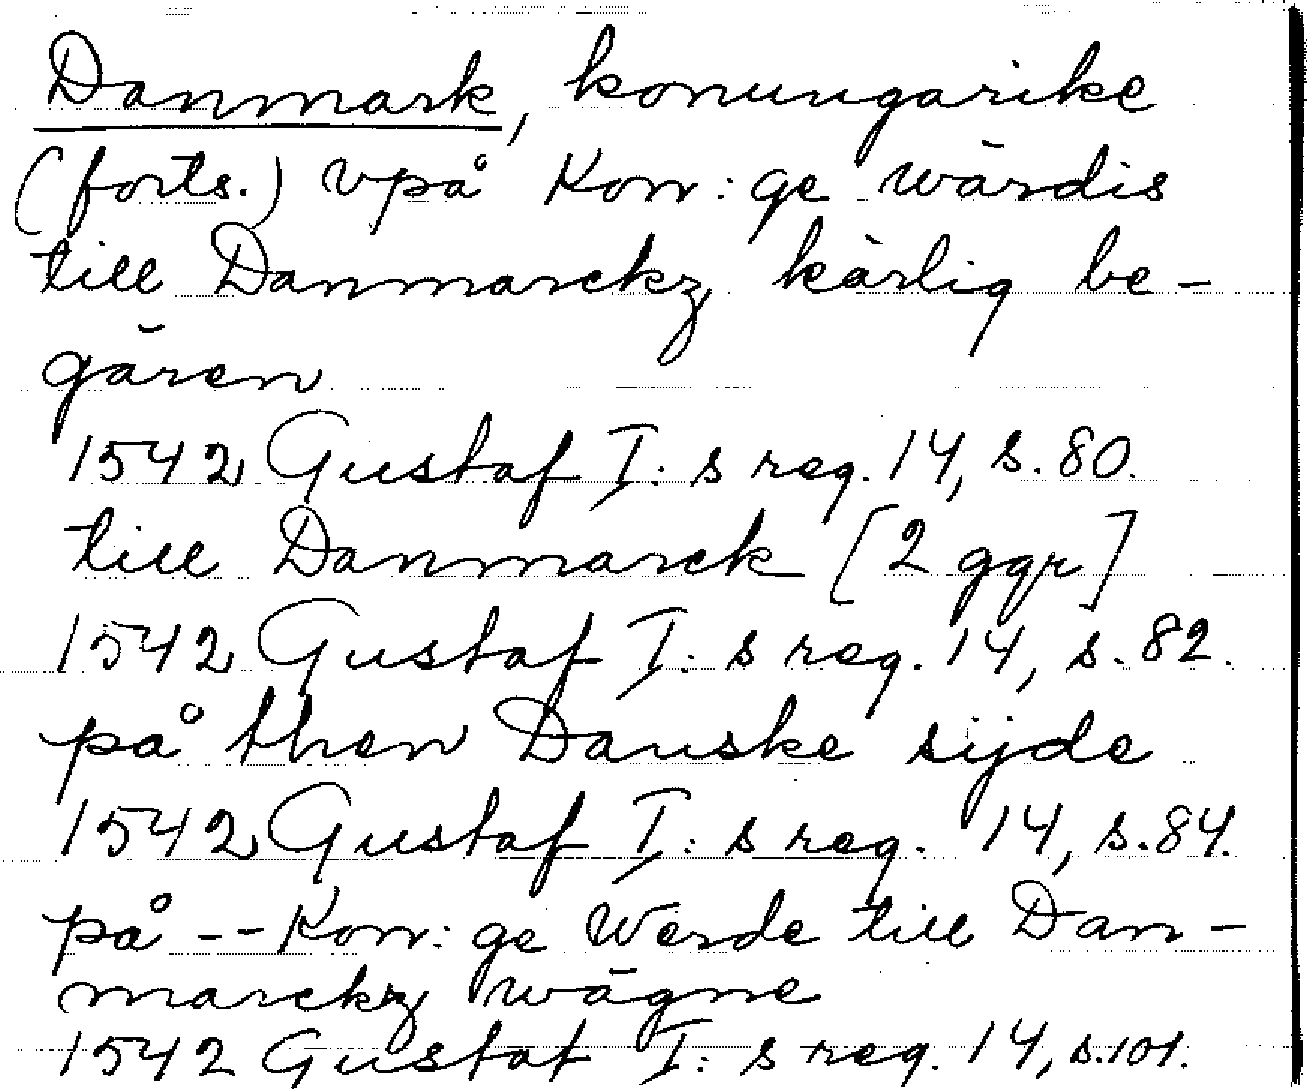 Danmark, konungarike
(forts.) vpå Kon:ge wärdis
till Danmarckz kärlig be-
gären
1542 Gustaf I:s reg. 14, s. 80.
till Danmarck [2 ggr]
1542 Gustaf I:s reg. 14, s. 82.
på then Danske sijde
1542 Gustaf I:s reg. 14, s. 84.
på -- Kon:ge Werde till Dan-
marckz wägne
1542 Gustaf I:s reg. 14, s. 101.